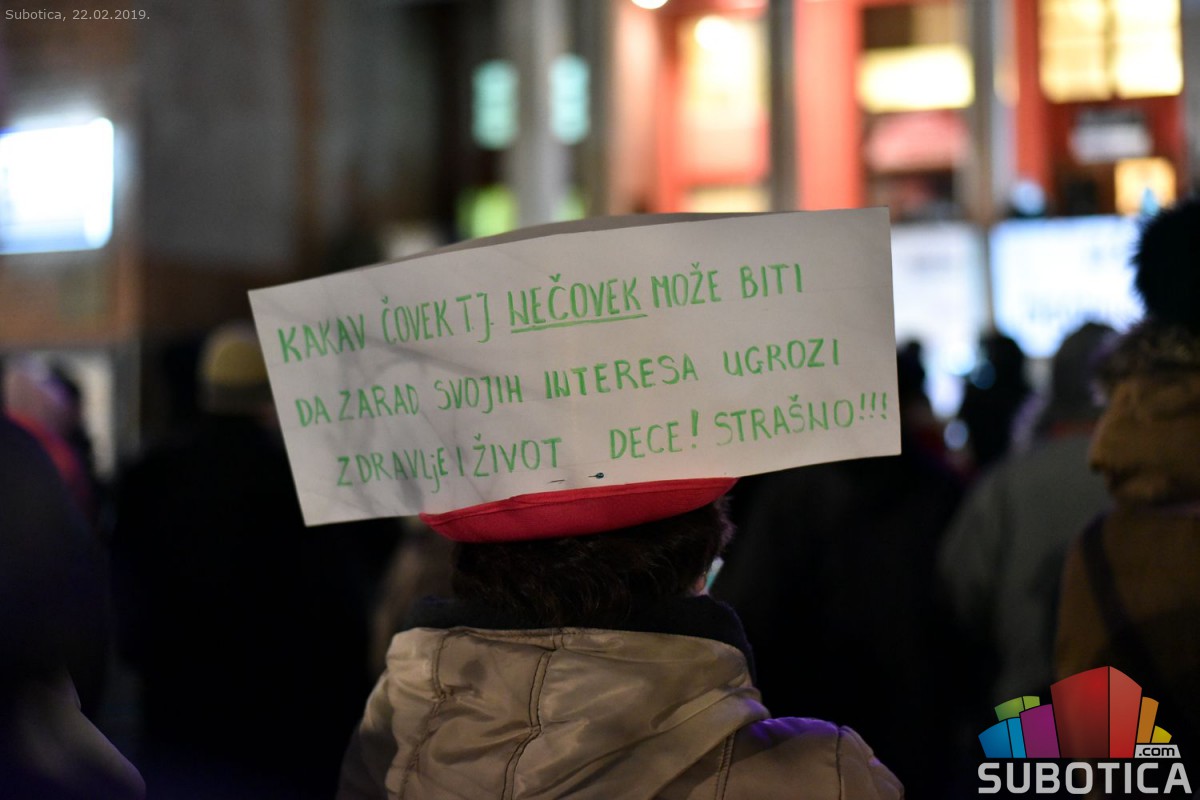 Subotica, 22.02.2019.
KAKAV ČOVEK TJ. NEČOVEK MOŽE BITI
DA ZARAD SVOJIH INTERESA UGROZI
ZDRAVLjE I ŽIVOT DECE! STRAŠNO!!!
.com
SUBOTICA